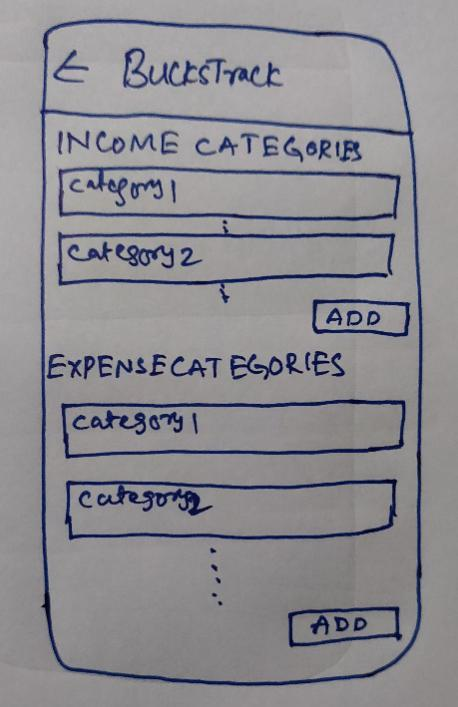 ← BucksTrack
INCOME CATEGORIES
category1
category2
ADD
EXPENSE CATEGORIES
category1
category2
ADD